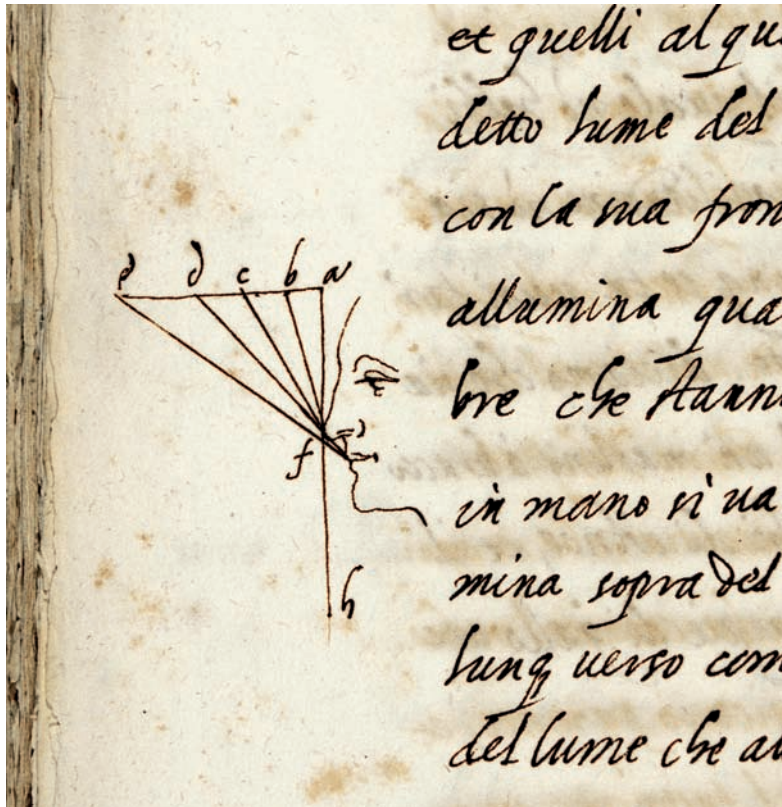 et quelli al que
detto lume del
con la sua fron
e d c b a
allumina qua
bre che stann
f
in mano si ua
h
mina sopra del
lunq uerso com
del lume che al